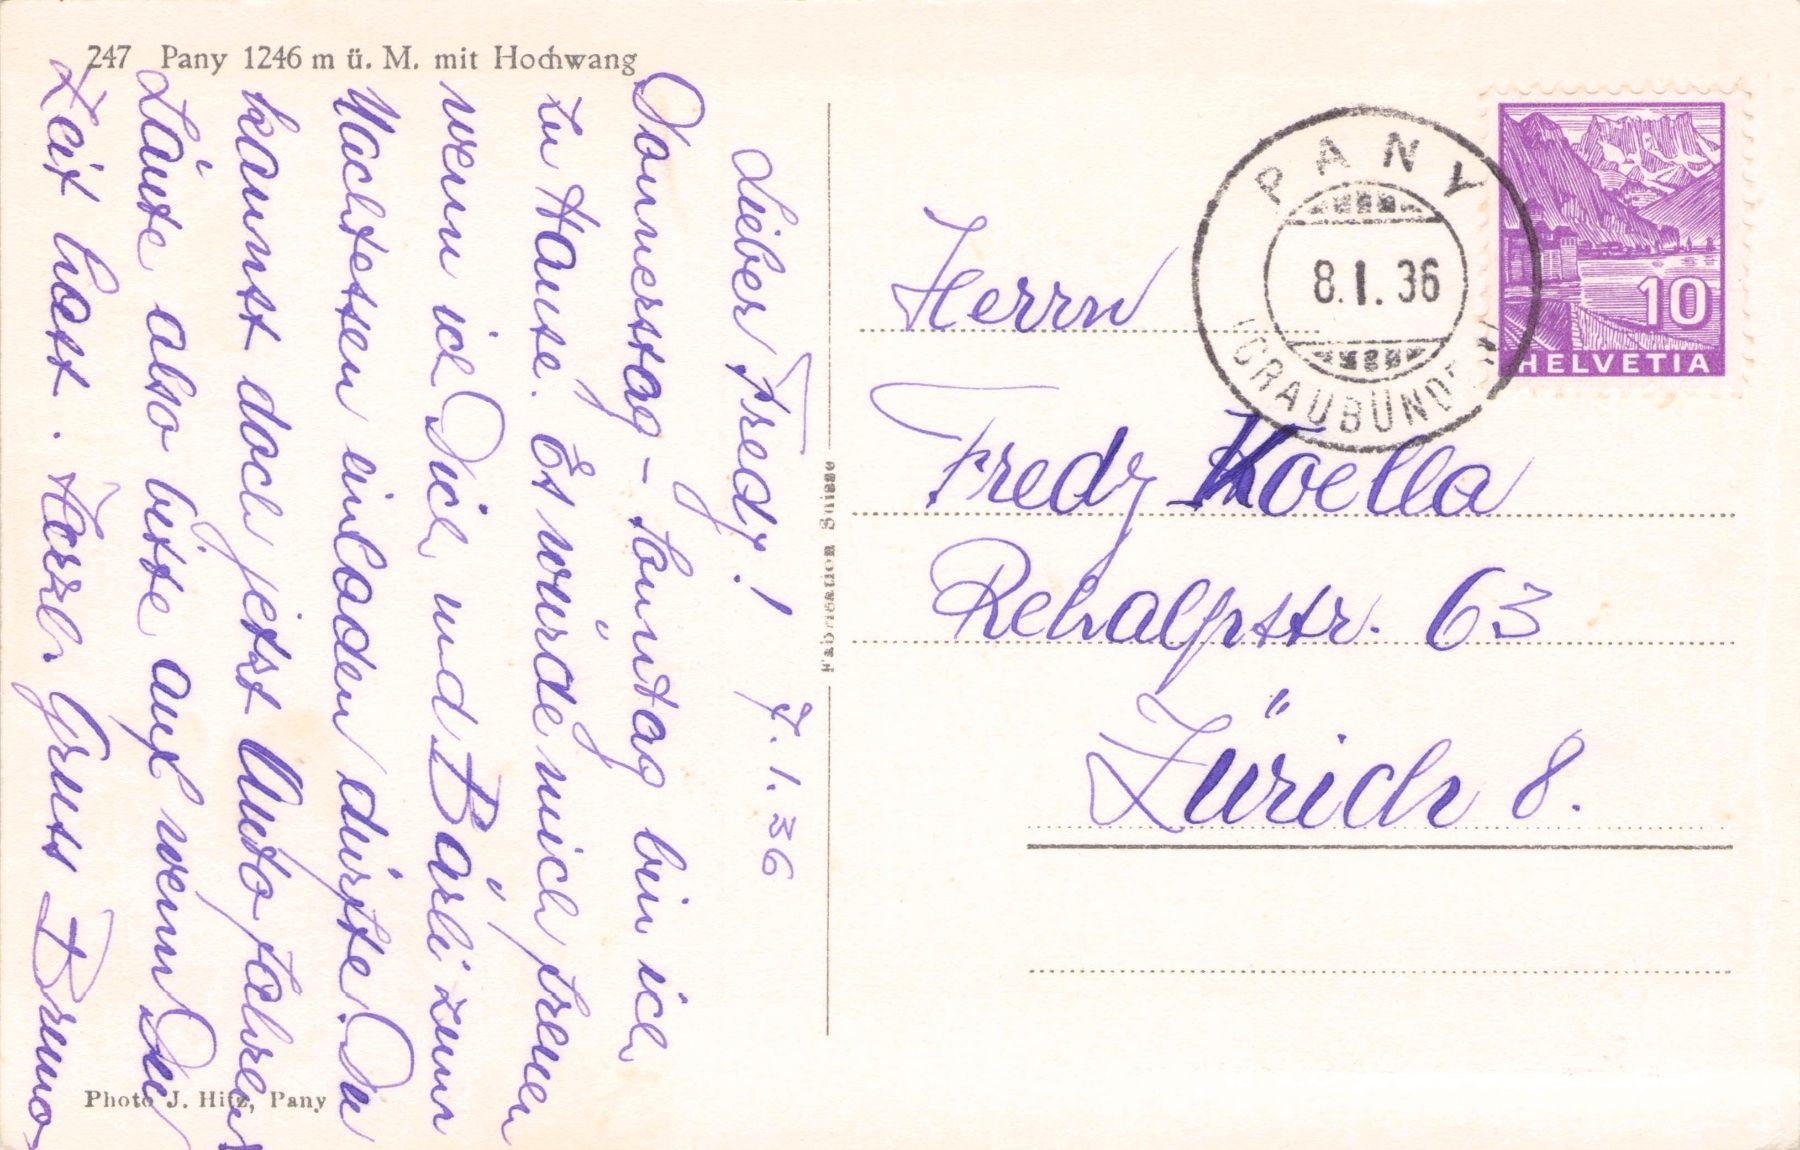 247 Pany 1246 m ü. M. mit Hochwang
Lieber Fredy! 7. 1. 36
Donnerstag - Sonntag bin ich
zu Hause. Es würde mich freuen
wenn ich Dich und Bärli zum
Nachtessen einladen dürfte. Du
kannst doch jetzt Auto fahren
Läute also bitte auf wenn Du
Zeit hast. Herzl. Gruss Bruno
Photo J. Hitz, Pany
Fabrication Suisse
PANY
8.I.36
(GRAUBÜNDEN)
10
HELVETIA
Herrn
Fredy Koella
Rehalpstr. 63
Zürich 8.